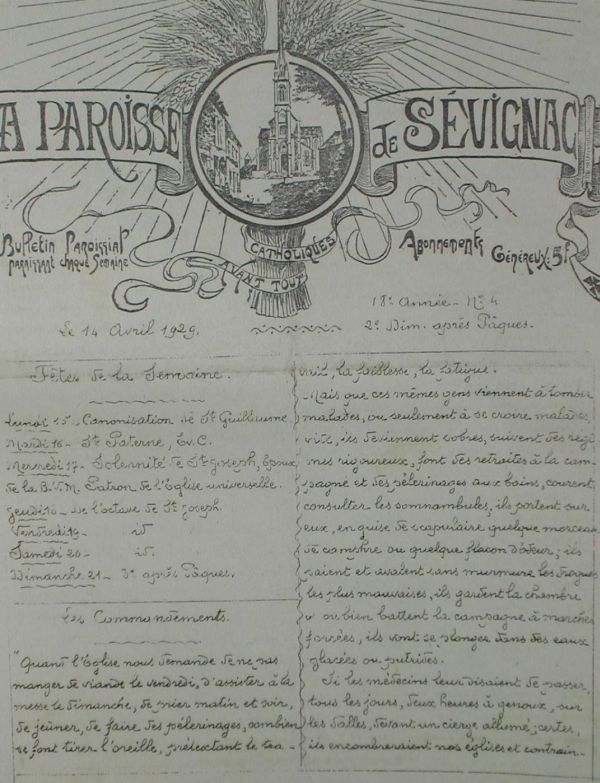 A PAROISSE DE SÉVIGNAC
Bulletin Paroissial
paraissant chaque Semaine
CATHOLIQUES
AVANT TOUT
Abonnements
Généreux: 5f
18e Année - No 4
Le 14 Avril 1929.
2e Dim. après Pâques.
Fêtes de la Semaine.
Lundi 15 - Canonisation de St Guillaume.
Mardi 16 - St Paterne, Ev. C.
Mercredi 17 - Solennité de St Joseph, Epoux
de la B.V.M. Patron de l'Eglise universelle.
Jeudi 18 - De l'octave de St Joseph.
Vendredi 19 - id
Samedi 20 - id.
Dimanche 21 - 3e après Pâques.
Les Commandements.
"Quand l'Eglise nous demande de ne pas
manger de viande le vendredi, d'assister à la
messe le dimanche, de prier matin et soir,
de jeûner, de faire des pèlerinages, combien
se font tirer l'oreille, prétextant le tra-
vail, la faiblesse, la fatigue.
Mais que ces mêmes gens viennent à tomber
malades, ou seulement à se croire malades,
vite, ils deviennent sobres, suivent des régi-
mes rigoureux, font des retraites à la cam-
pagne et des pèlerinages aux bains, courent
consulter les somnambules, ils portent sur
eux, en guise de scapulaire quelque morceau
de camphre ou quelque flacon d'odeur; ils
paient et avalent sans murmure les drogues
les plus mauvaises, ils gardent la chambre
ou bien battent la campagne à marches
forcées, ils vont se plonger dans des eaux
glacées ou putrides.
Si les médecins leur disaient de passer
tous les jours, deux heures à genoux, sur
les dalles, devant un cierge allumé; certes,
ils encombreraient nos églises et contrain-